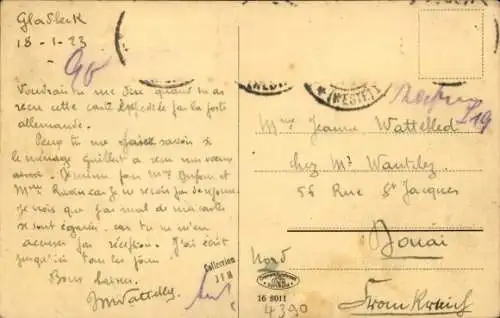 Gladbeck
18-1-23
Voudrais tu me dire quand tu as
reçu cette carte expédiée par la poste
allemande.
Peux tu me savoir si
le ménage Guillet a reçu mes voeux
ainsi que Mr Dupont et
Mme car je ne reçois pas de réponse
je vois que pas mal de mes cartes
se sont égarées car tu ne m'en
accuses pas réception. J'ai écrit
jusqu'ici tous les jours.
Bons baisers.
JWattelled
(WESTF.)
Mme Jeanne Wattelled
chez Mr Wantiez
56 Rue St Jacques
Douai
Nord
Frankreich
Collection
16 8011
4390